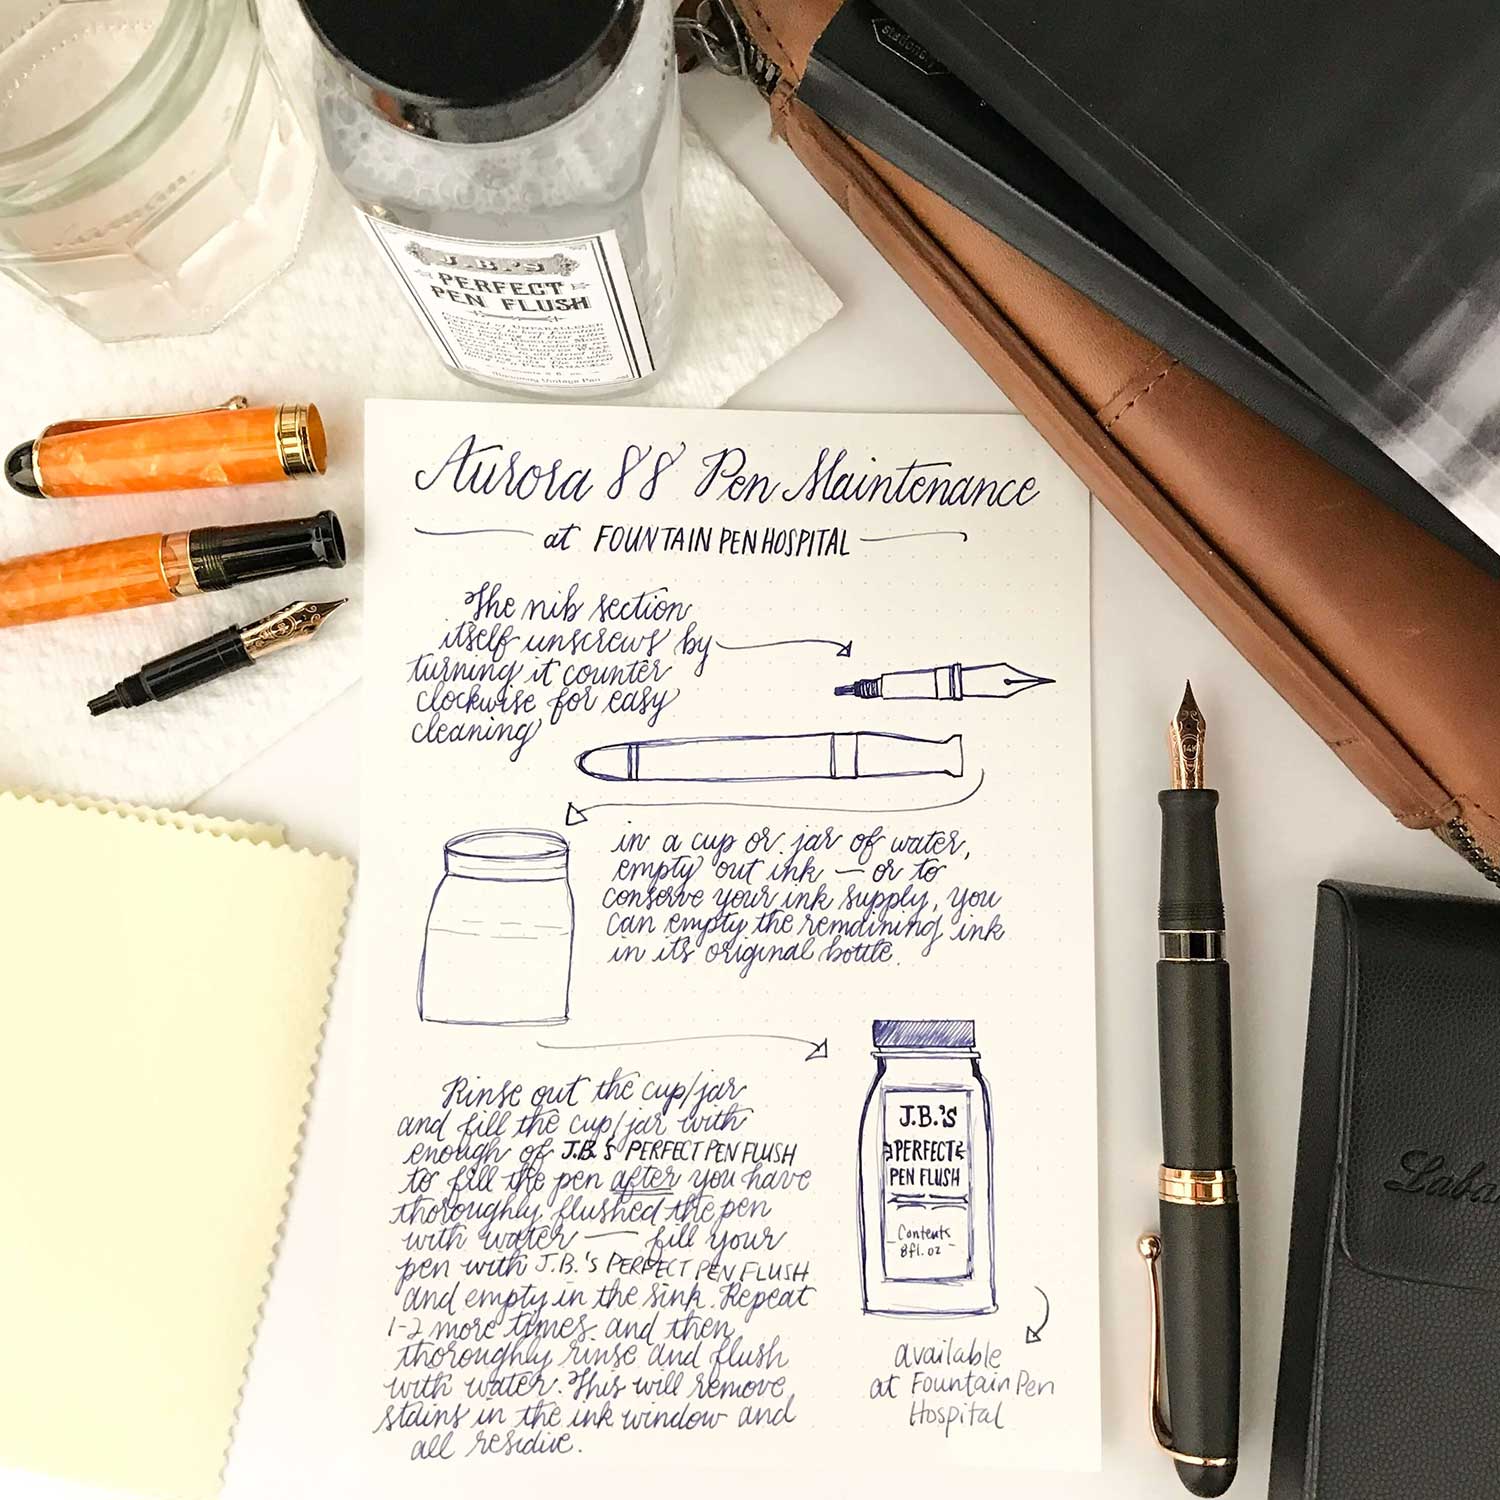 stationery
J.B.'S
PERFECT
PEN FLUSH
Aurora 88 Pen Maintenance
at FOUNTAIN PEN HOSPITAL
The nib section
itself unscrews by
turning it counter
clockwise for easy
cleaning
in a cup or jar of water,
empty out ink — or to
conserve your ink supply, you
can empty the remaining ink
in its original bottle.
Rinse out the cup/jar
and fill the cup/jar with
enough of J.B.'S PERFECT PEN FLUSH
to fill the pen after you have
thoroughly flushed the pen
with water — fill your
pen with J.B.'S PERFECT PEN FLUSH
and empty in the sink. Repeat
1-2 more times and then
thoroughly rinse and flush
with water. This will remove
stains in the ink window and
all residue.
J.B.'S
PERFECT
PEN FLUSH
Contents
8fl. oz
available
at Fountain Pen
Hospital
14K
Laba